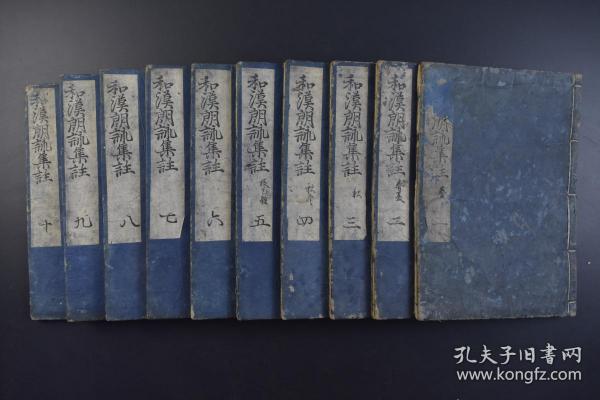 詠集註 春 一
和漢朗詠集註 春夏 二
和漢朗詠集註 秋 三
和漢朗詠集註 秋冬 四
和漢朗詠集註 五
和漢朗詠集註 六
和漢朗詠集註 七
和漢朗詠集註 八
和漢朗詠集註 九
和漢朗詠集註 十
孔夫子旧书网
www.kongfz.com